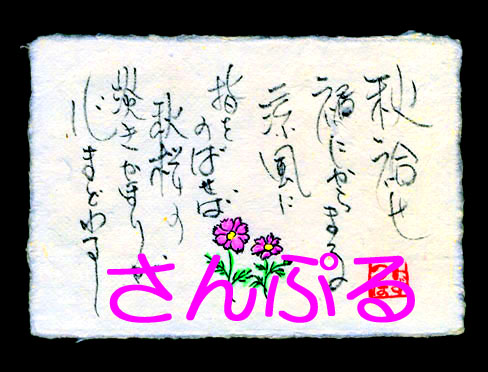 秋袷せ
裾にからまる
涼風に
指を
のばせば
秋桜の
淡きかほりが
心まどわす
さんぷる